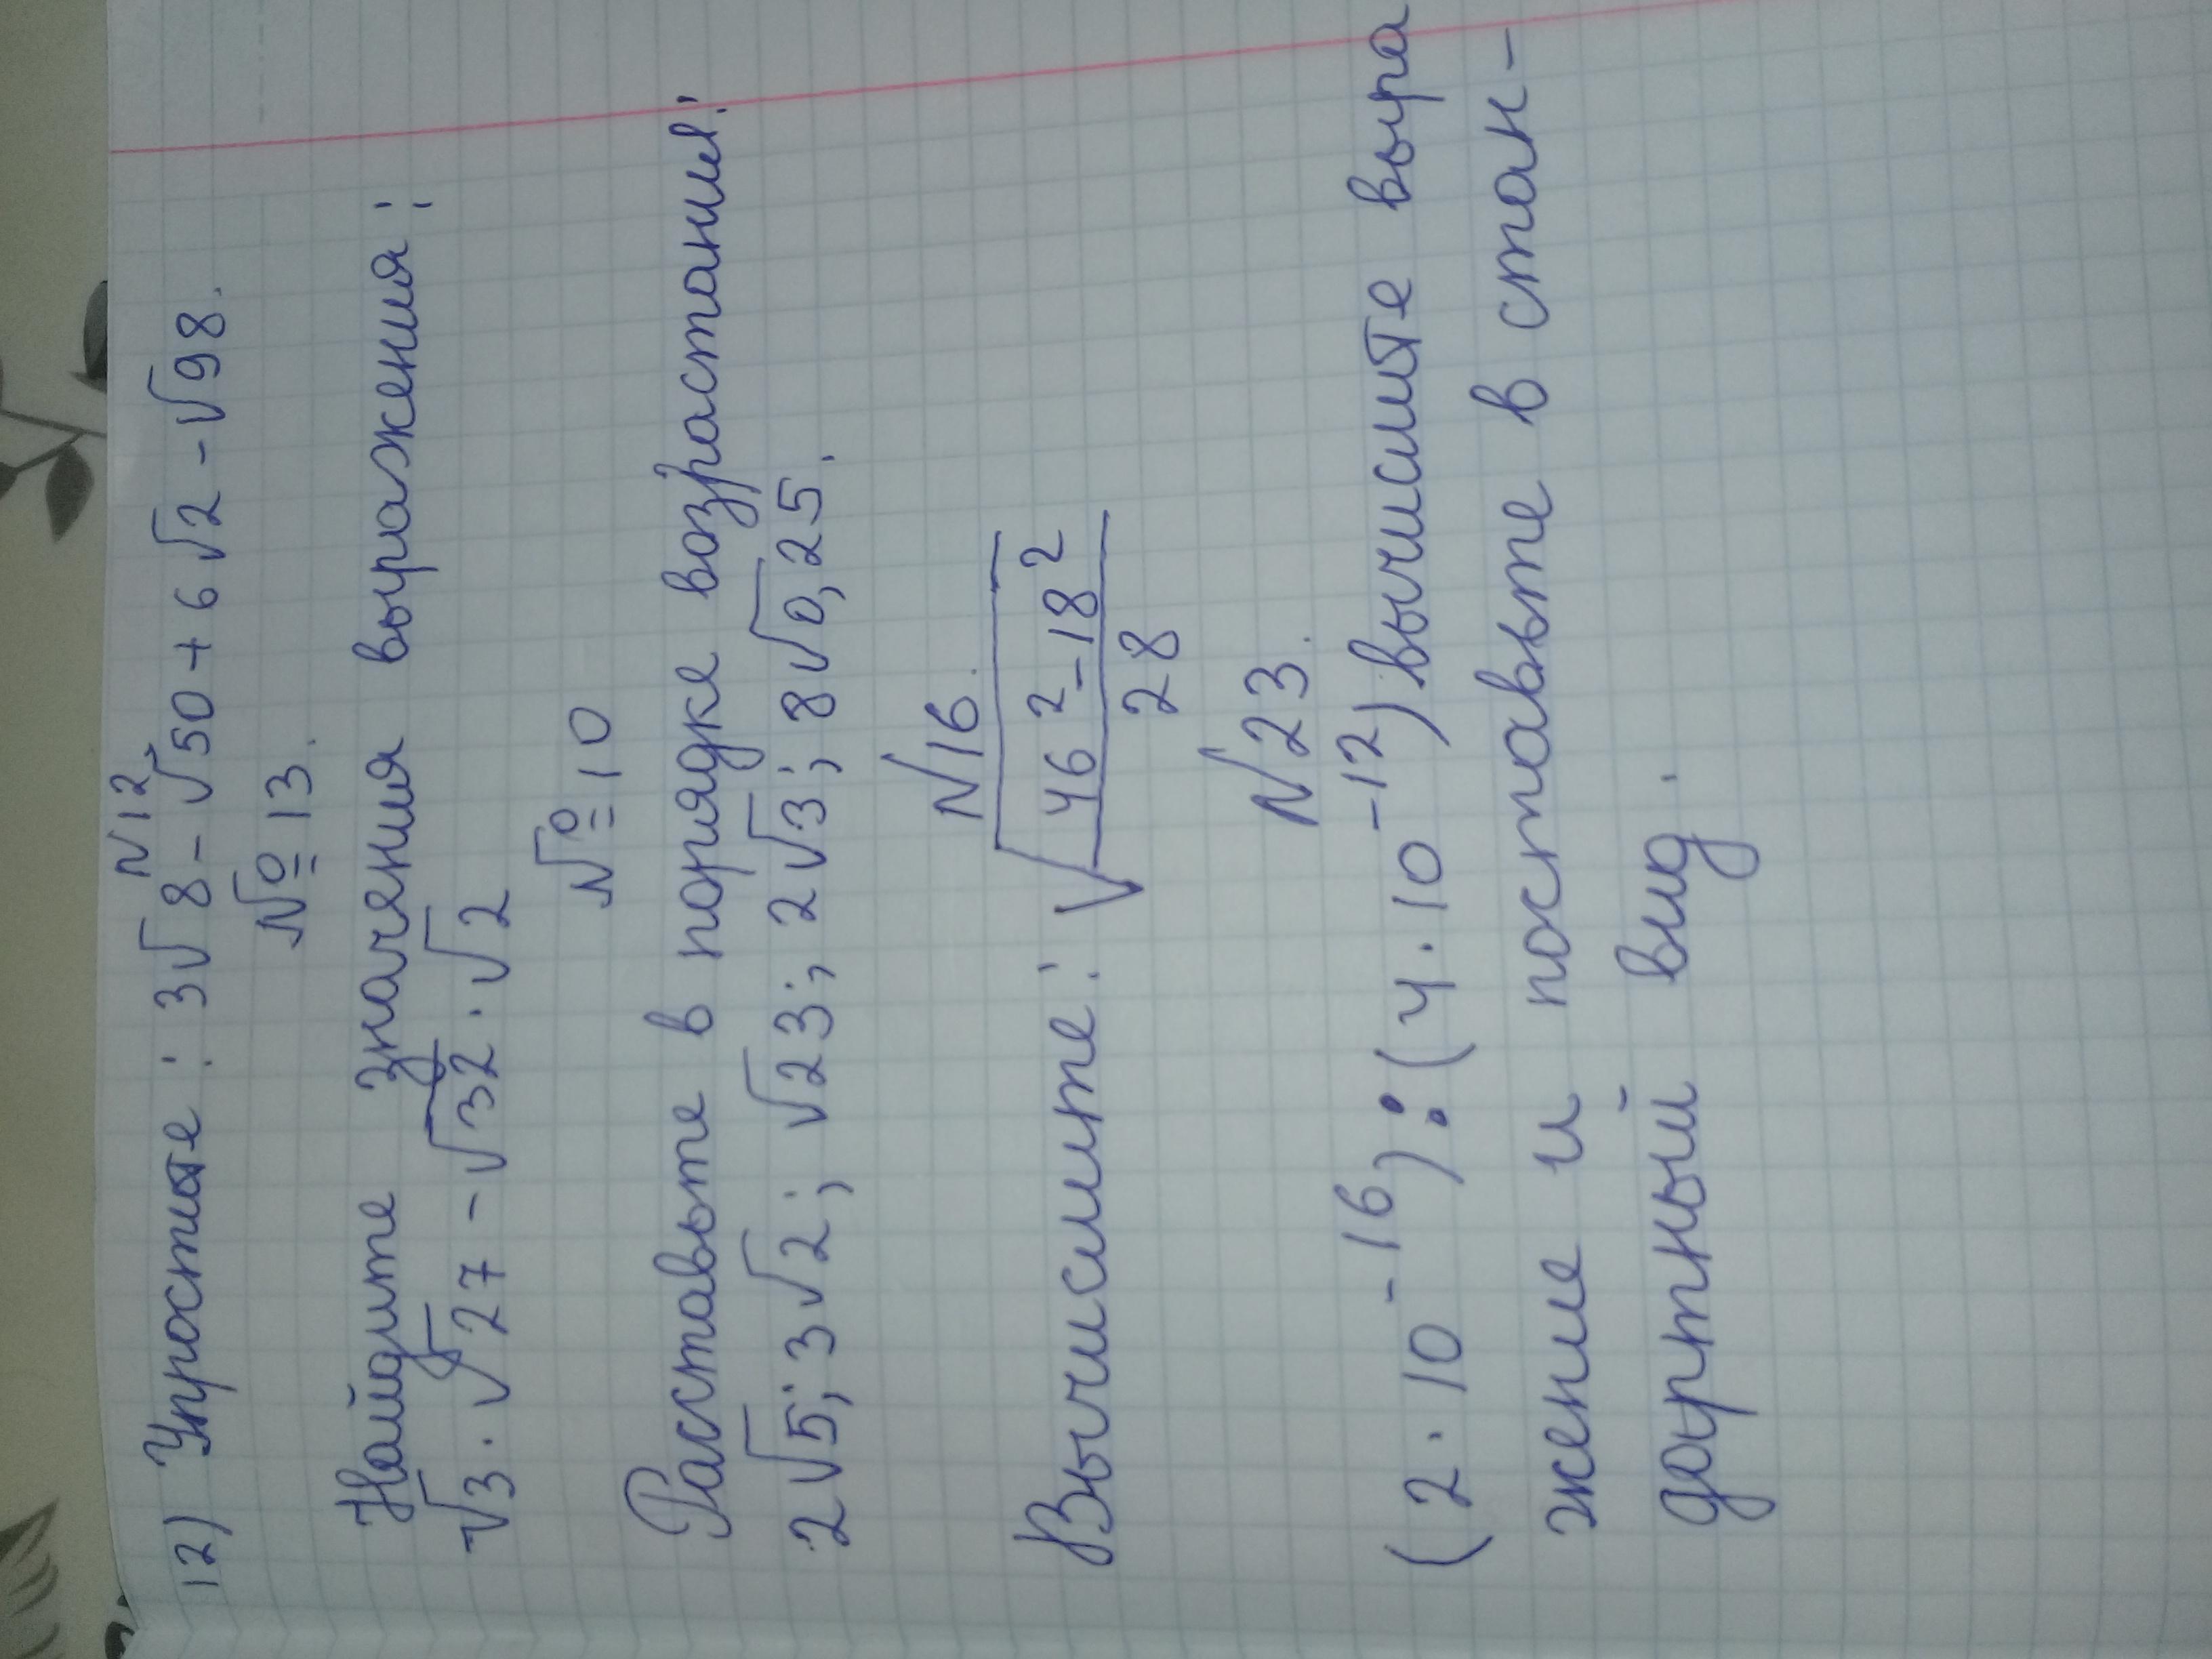 N12
12) Упростите : 3√8 - √50 + 6√2 - √98.
№13.
Найдите значения выражения :
√3 · √27 - √32 · √2
№10
Расставьте в порядке возрастания:
2√5; 3√2; √23; 2√3; 8√0,25.
N16.
Вычислите: √((46² - 18²)/28)
N23.
(2 · 10⁻¹⁶) : (4 · 10⁻¹²) вычислите выра
жение и поставьте в стан-
дартный вид.